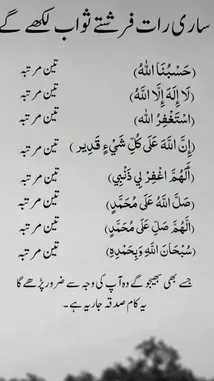 ساری رات فرشتے ثواب لکھے گے
(حَسْبُنَا اللهُ) تین مرتبہ
(لَا إِلٰهَ إِلَّا اللَّهُ) تین مرتبہ
(اسْتَغْفِرُ الله) تین مرتبہ
(إِنَّ اللَّهَ عَلَى كُلِّ شَيْءٍ قَدِير) تین مرتبہ
(أَلّٰهُمَّ اغْفِرْ لِي ذَنْبِي) تین مرتبہ
(صَلَّ اللهُ عَلَى مُحَمَّدٍ) تین مرتبہ
(الّٰهُمَّ صَلِّ عَلَى مُحَمَّدٍ) تین مرتبہ
(سُبْحَانَ اللَّهِ وَبِحَمْدِهِ) تین مرتبہ
جسے بھی بھیجو گے وہ آپ کی وجہ سے ضرور پڑھے گا
یہ کام صدقہ جاریہ ہے۔